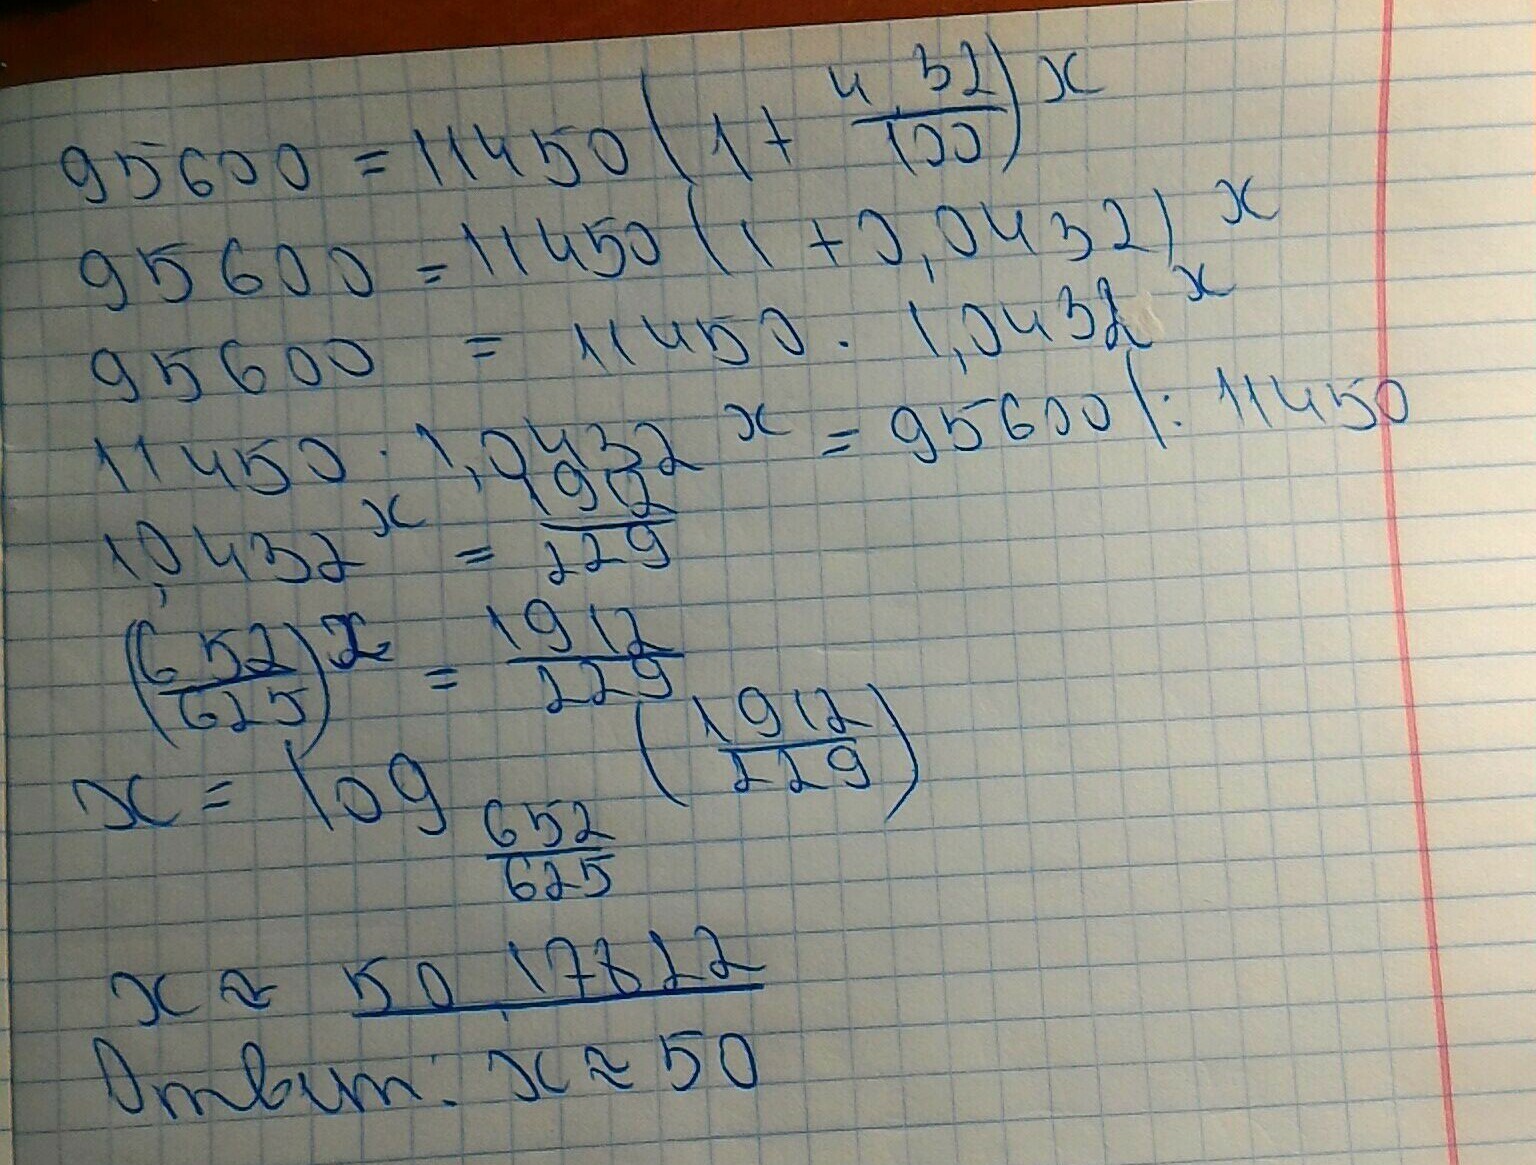 95600 = 11450 (1 + 4,32/100)^x
95600 = 11450 (1 + 0,0432)^x
95600 = 11450 · 1,0432^x
11450 · 1,0432^x = 95600 |: 11450
1,0432^x = 1912/229
(652/625)^x = 1912/229
x = log_{652/625} (1912/229)
x ≈ 50,17822
Ответ: x ≈ 50